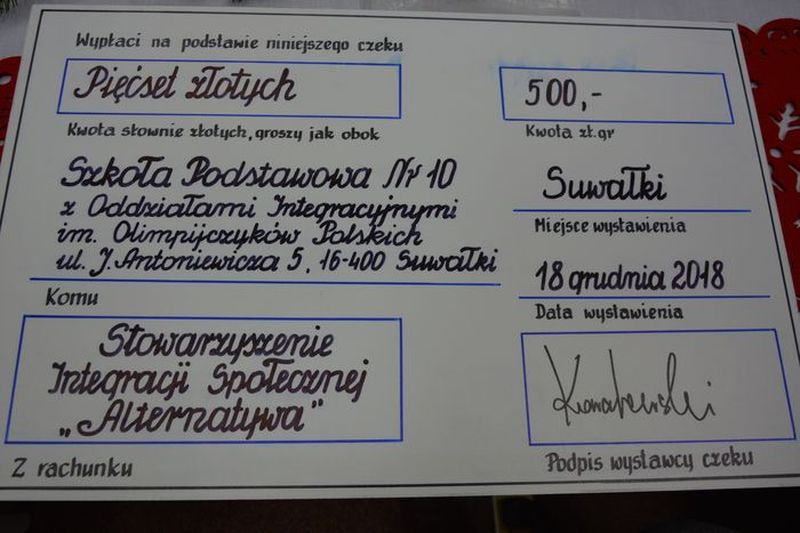 Wypłaci na podstawie niniejszego czeku
Pięćset złotych
500,-
Kwota słownie złotych, groszy jak obok
Kwota zł.gr
Szkoła Podstawowa Nr 10
z Oddziałami Integracyjnymi
im. Olimpijczyków Polskich
ul. J. Antoniewicza 5, 16-400 Suwałki
Komu
Suwałki
Miejsce wystawienia
18 grudnia 2018
Data wystawienia
Stowarzyszenie
Integracji Społecznej
„Alternatywa"
Z rachunku
Podpis wystawcy czeku